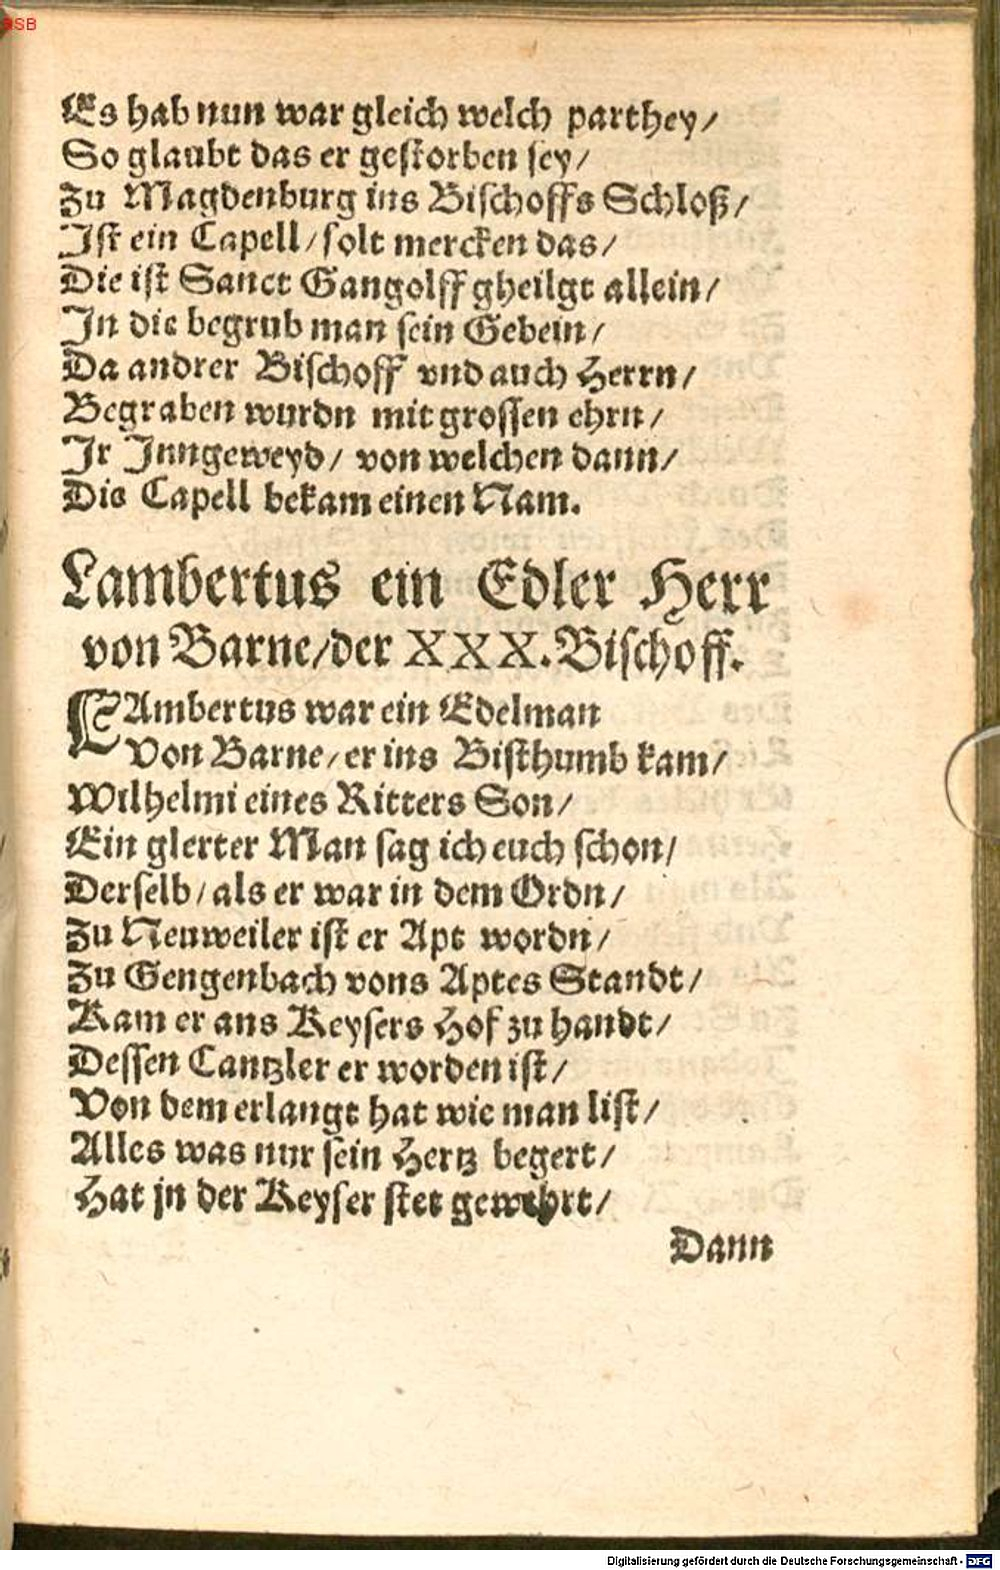 BSB
Es hab nun war gleich welch parthey/
So glaubt das er gestorben sey/
Zu Magdenburg ins Bischoffs Schloß/
Ist ein Capell/ solt mercken das/
Die ist Sanct Gangolff gheilgt allein/
In die begrub man sein Gebein/
Da andrer Bischoff vnd auch Herrn/
Begraben wurdn mit grossen ehrn/
Ir Inngeweyd/ von welchen dann/
Die Capell bekam einen Nam.
Lambertus ein Edler Herr
von Barne/der XXX. Bischoff.
LAmbertus war ein Edelman
Von Barne/ er ins Bisthumb kam/
Wilhelmi eines Ritters Son/
Ein glerter Man sag ich euch schon/
Derselb/ als er war in dem Ordn/
Zu Neuweiler ist er Apt wordn/
Zu Gengenbach vons Aptes Standt/
Kam er ans Keysers Hof zu handt/
Dessen Cantzler er worden ist/
Von dem erlangt hat wie man list/
Alles was nur sein Hertz begert/
Hat jn der Keyser stet gewehrt/
Dann
Digitalisierung gefördert durch die Deutsche Forschungsgemeinschaft - DFG